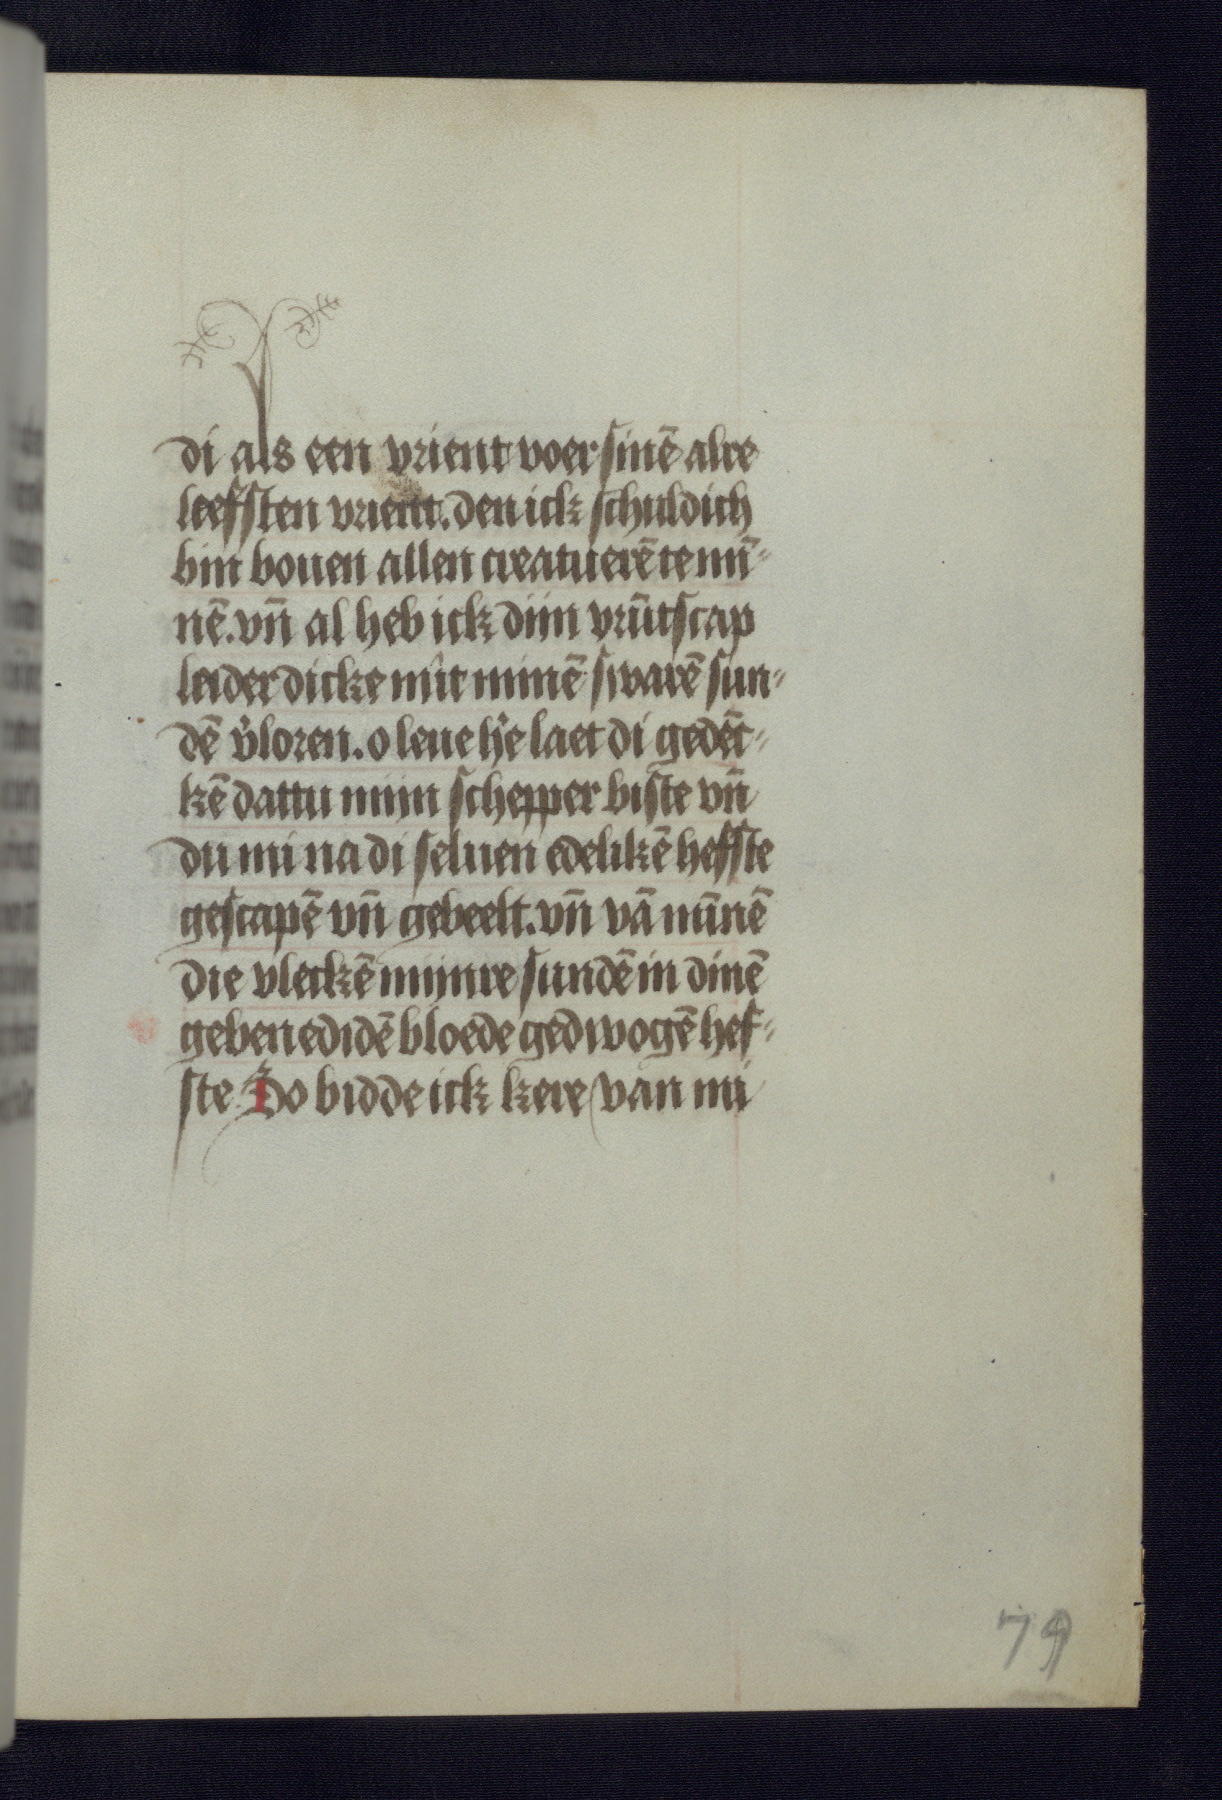 di als een vrient voer sinē alre
leefsten vrient. den ick schuldich
bin bouen allen creatuerē te mī⸗
nē. vn̄ al heb ick dijn vrūtscap
leider dicke mit minē swarē sun⸗
dē v̓loren. o leue h̓e laet di gedēc⸗
kē dattu mijn schepper biste vn̄
du mi na di seluen edelikē hefste
gescapē vn̄ gebeelt. vn̄ vā mīnē
die vleckē mijnre sundē in dinē
gebenedidē bloede gedwogē hef⸗
ste. So bidde ick kere van mi
79